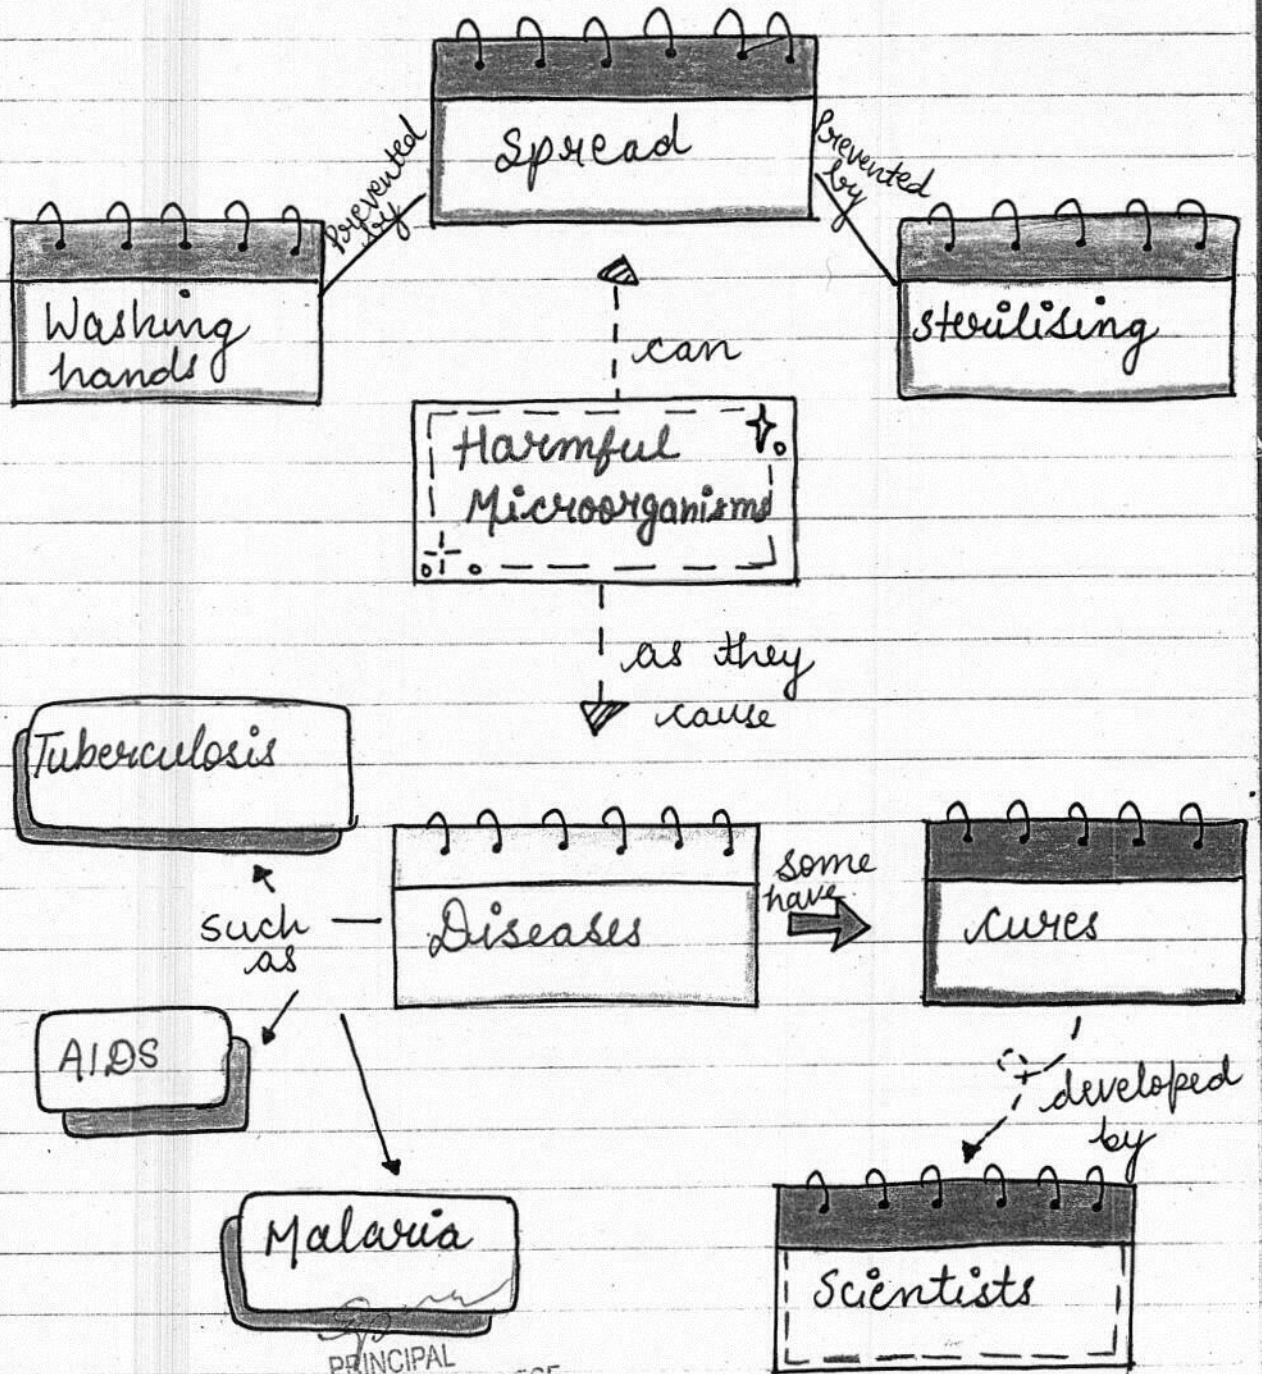 Spread
Prevented
by
Prevented
by
Washing
hands
sterilising
can
Harmful
Microorganisms
as they
cause
Tuberculosis
Diseases
some
have
cures
such
as
AIDS
developed
by
Malaria
Scientists
PRINCIPAL